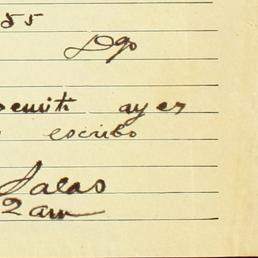 55
Dgo
ayer
escribo
Salas
2 am